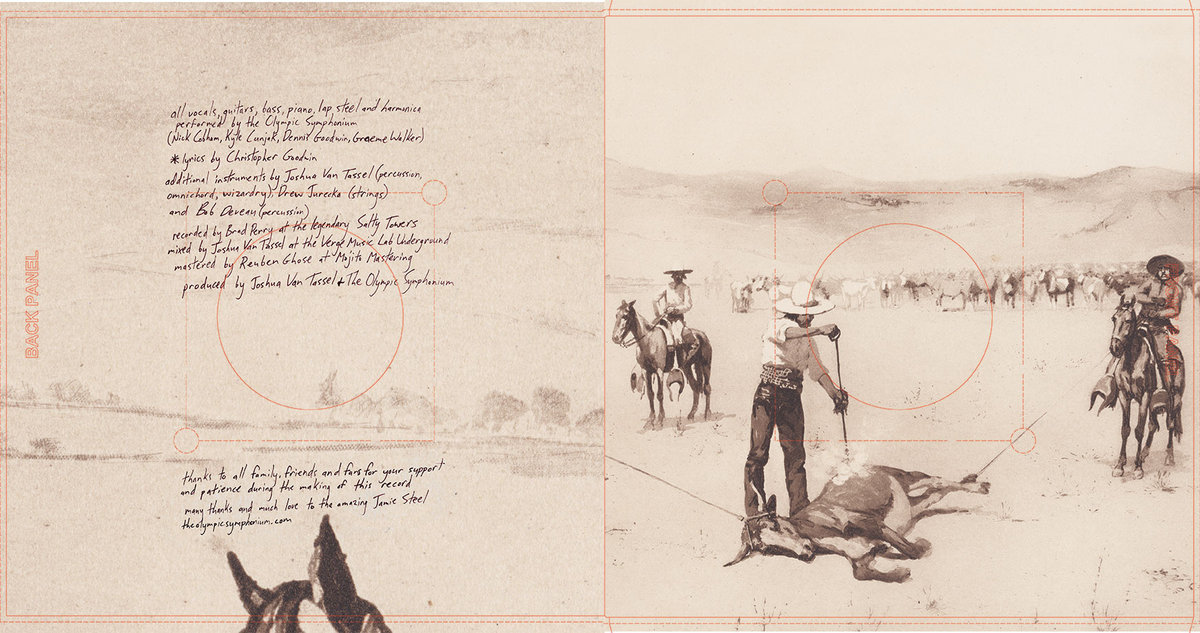 BACK PANEL
all vocals, guitars, bass, piano, lap steel and harmonica
performed by the Olympic Symphonium
(Nick Cobham, Kyle Cunjak, Dennis Goodwin, Graeme Walker)
*lyrics by Christopher Goodwin
additional instruments by Joshua Van Tassel (percussion,
omnichord, wizardry), Drew Jurecka (strings)
and Bob Deveau (percussion)
recorded by Brad Perry at the legendary Salty Towers
mixed by Joshua Van Tassel at the Verge Music Lab Underground
mastered by Reuben Ghose at Mojito Mastering
produced by Joshua Van Tassel + The Olympic Symphonium
thanks to all family, friends and fans for your support
and patience during the making of this record
many thanks and much love to the amazing Jamie Steel
theolympicsymphonium.com